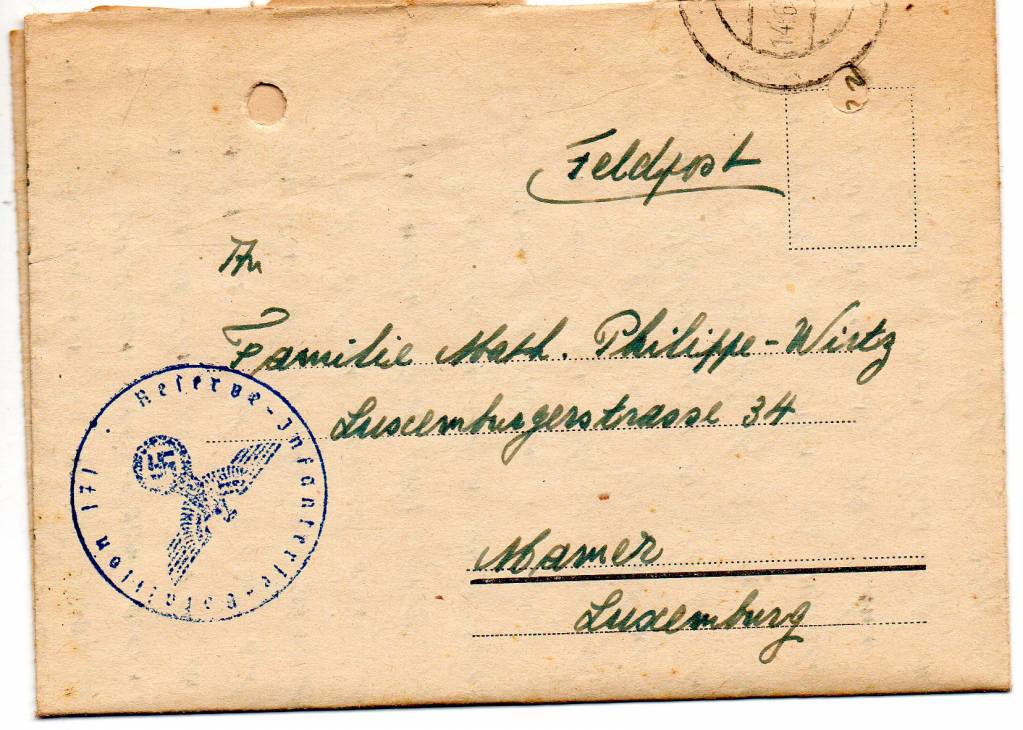 14.6
Feldpost
An
Familie Math. Philippe-Wirtz
Luxemburgerstrasse 34
Mamer
Luxemburg
Reserve-Infanterie-Bataillon 171